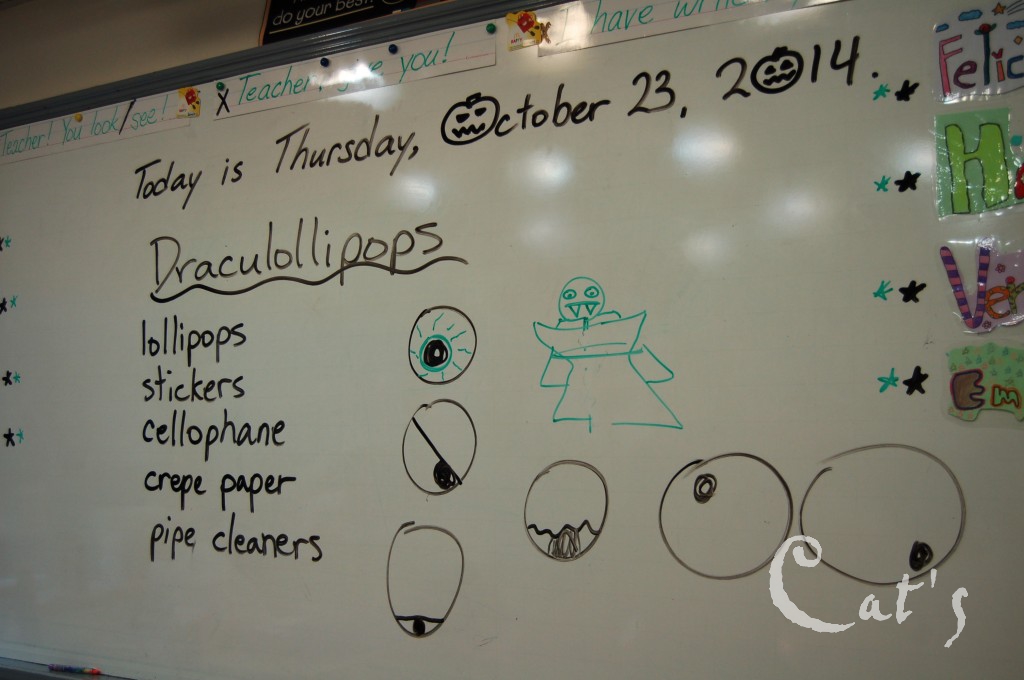 do your best!
Teacher! You look/see!
X Teacher, give you!
I have
Today is Thursday, October 23, 2014.
Draculollipops
lollipops
stickers
cellophane
crepe paper
pipe cleaners
Cat's